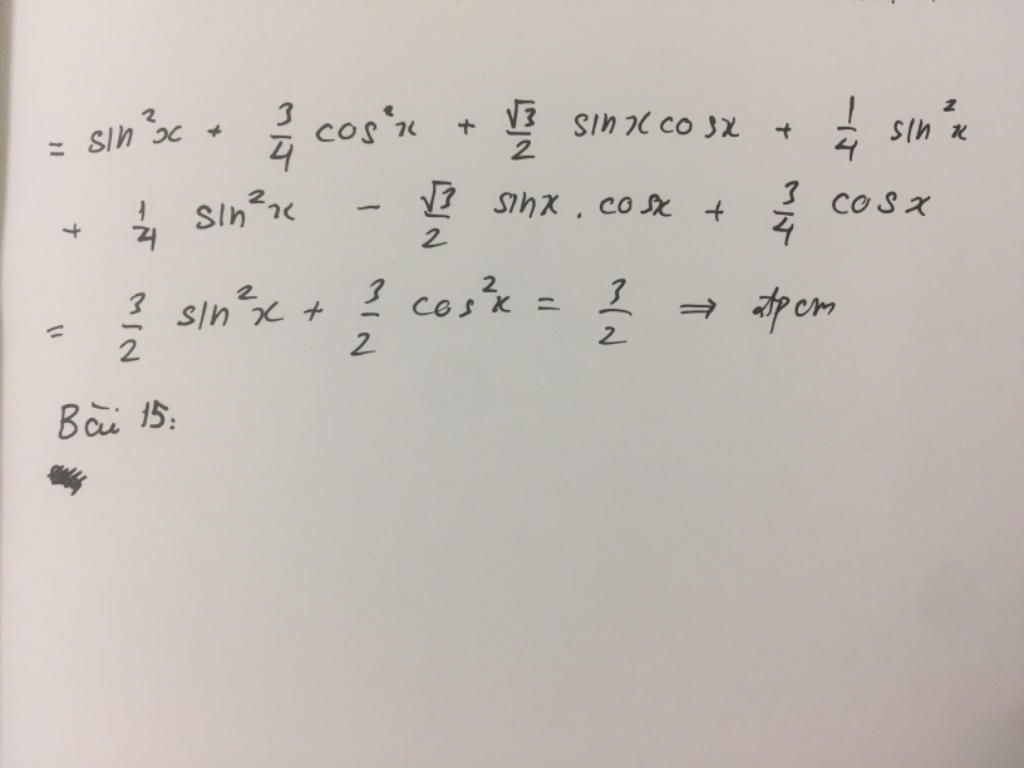 = sin²x + 3/4 cos²x + √3/2 sinx cosx + 1/4 sin²x
+ 1/4 sin²x - √3/2 sinx . cosx + 3/4 cosx
= 3/2 sin²x + 3/2 cos²x = 3/2 ⇒ đpcm
Bài 15: